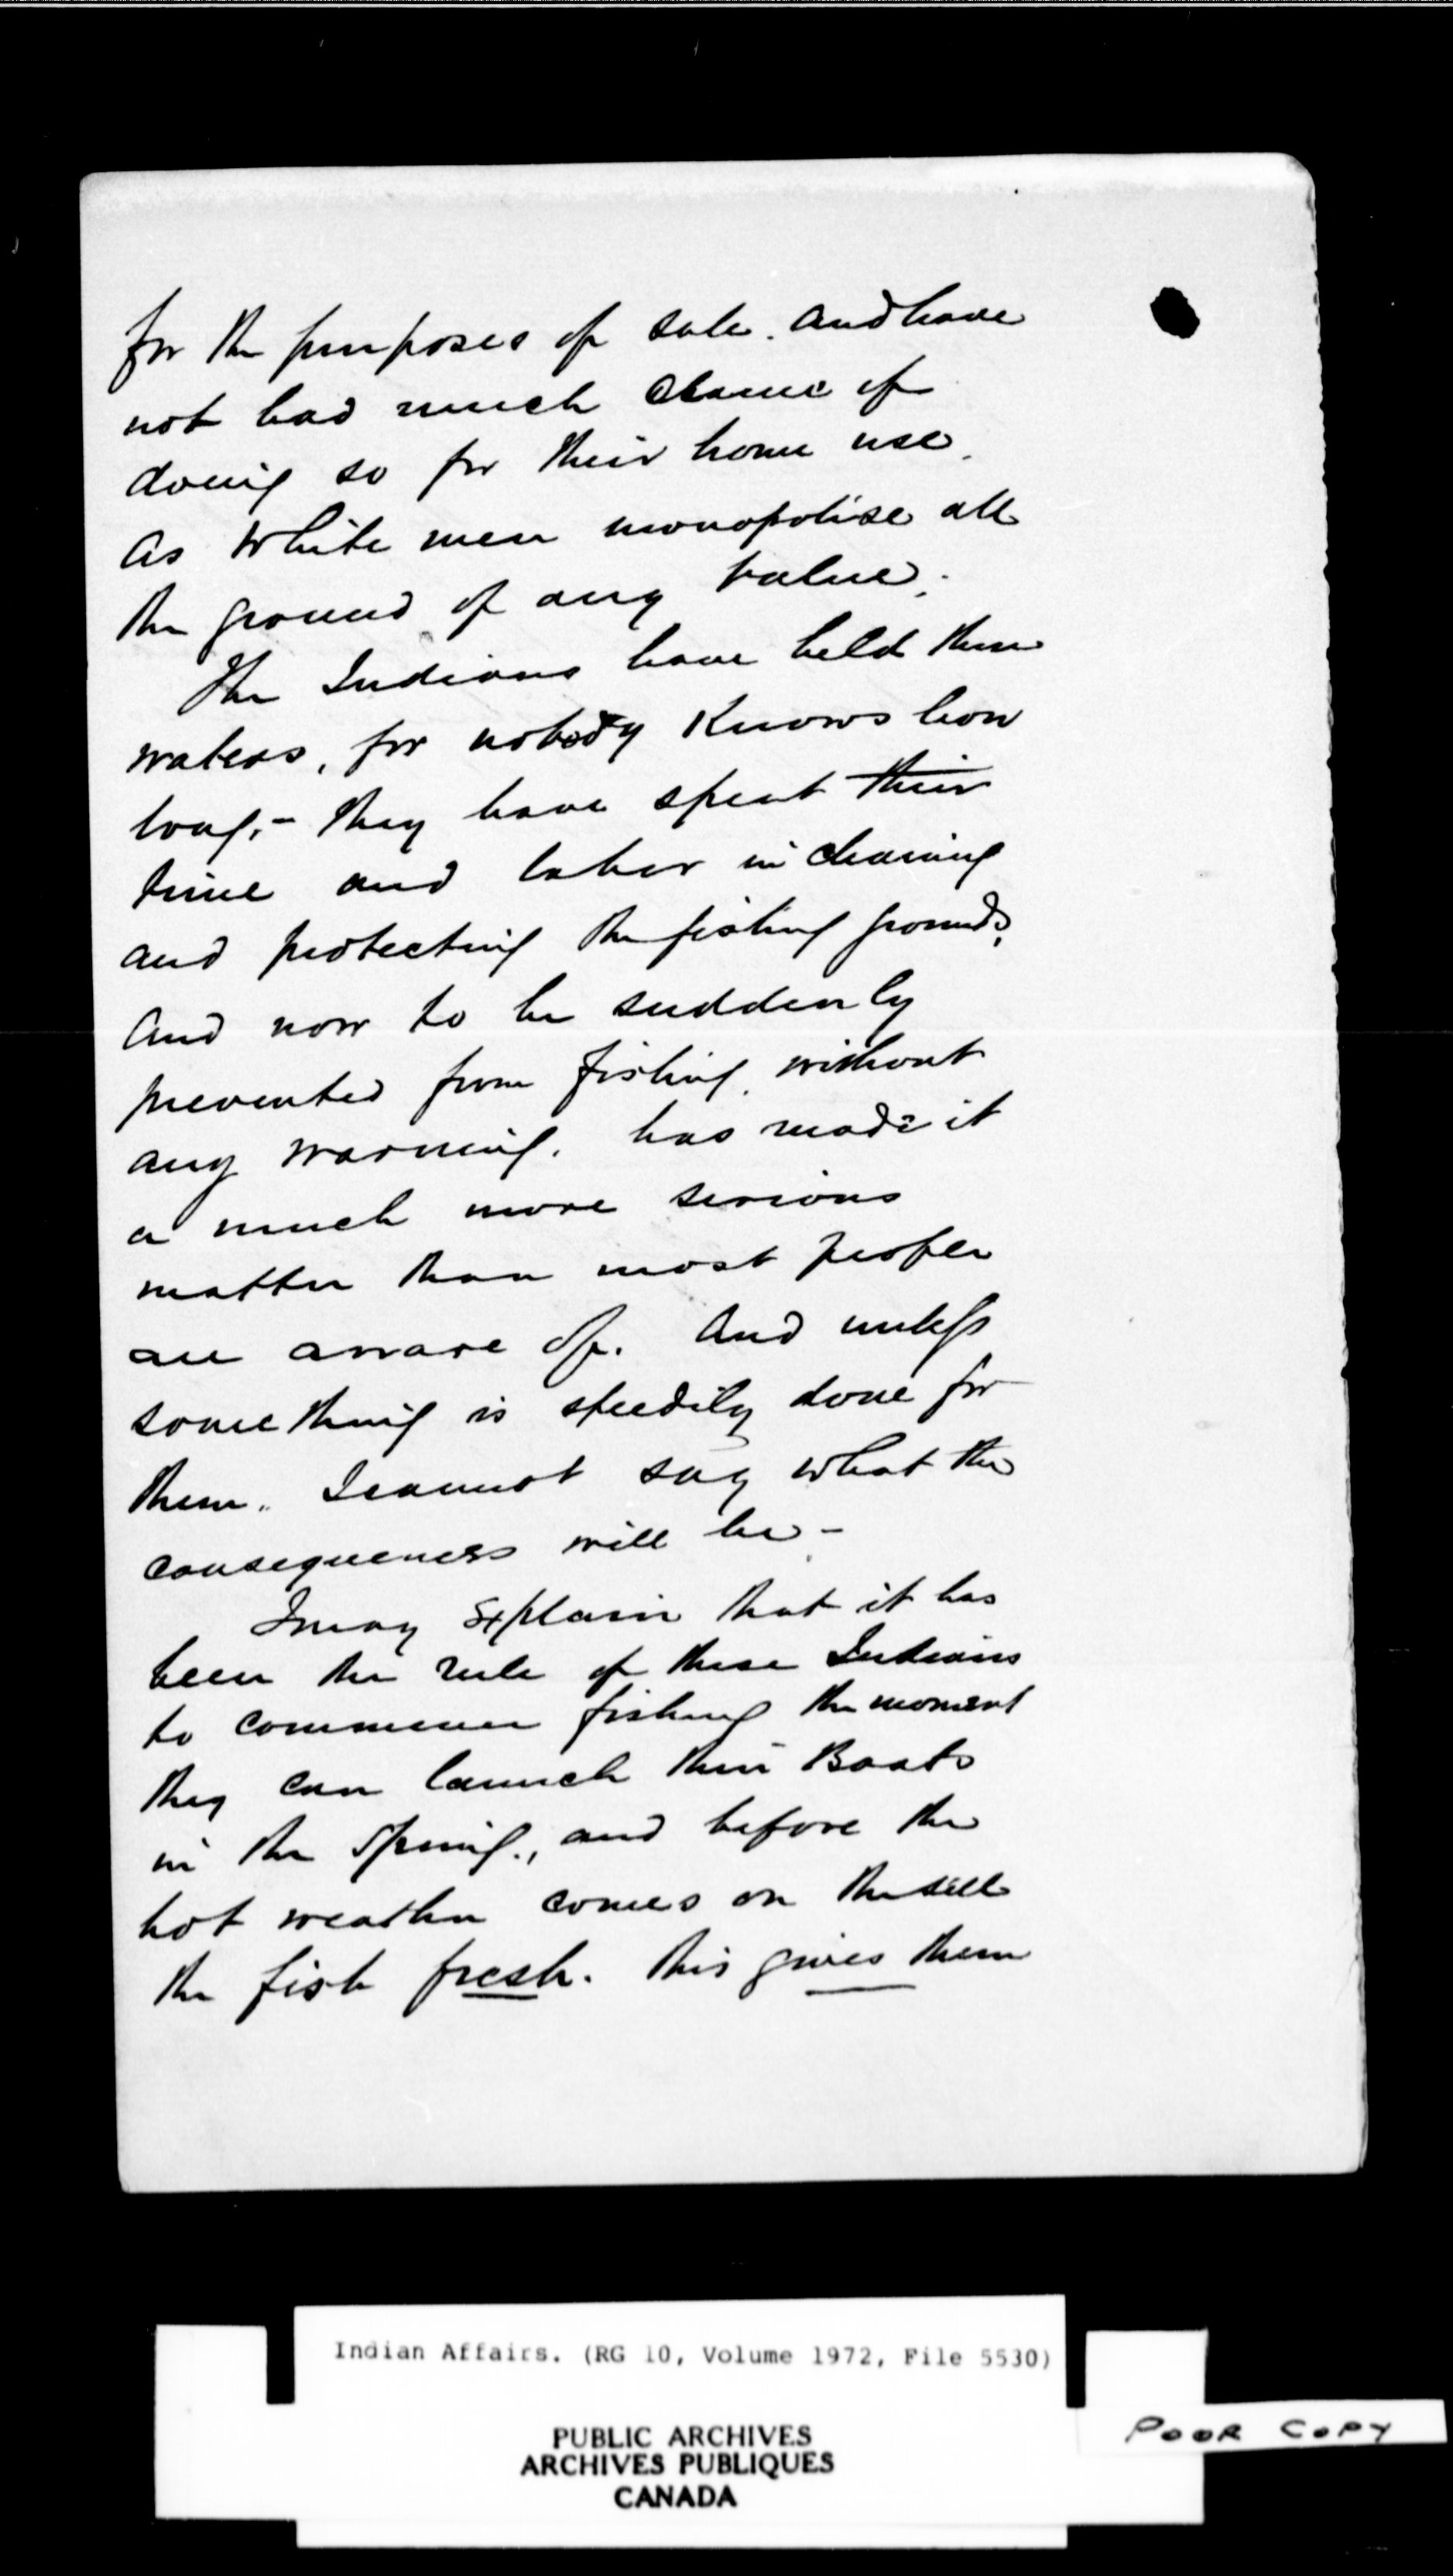 for the purposes of sale. and have
not had much chance of
doing so for their home use.
as White men monopolise all
the ground of any value.
The Indians have held these
waters, for nobody Knows how
long,- they have spent their
time and labor in cleaning
and protecting the fishing grounds,
and now to be suddenly
prevented from fishing, without
any warning, has made it
a much more serious
matter than most people
are aware of. And unless
something is speedily done for
them. I cannot say what the
consequences will be -
I may Explain that it has
been the rule of these Indians
to commence fishing the moment
they can launch their Boats
in the Spring., and before the
hot weather comes on the sell
the fish fresh. this gives them
Indian Affairs. (RG 10, Volume 1972, File 5530)
PUBLIC ARCHIVES
ARCHIVES PUBLIQUES
CANADA
POOR COPY